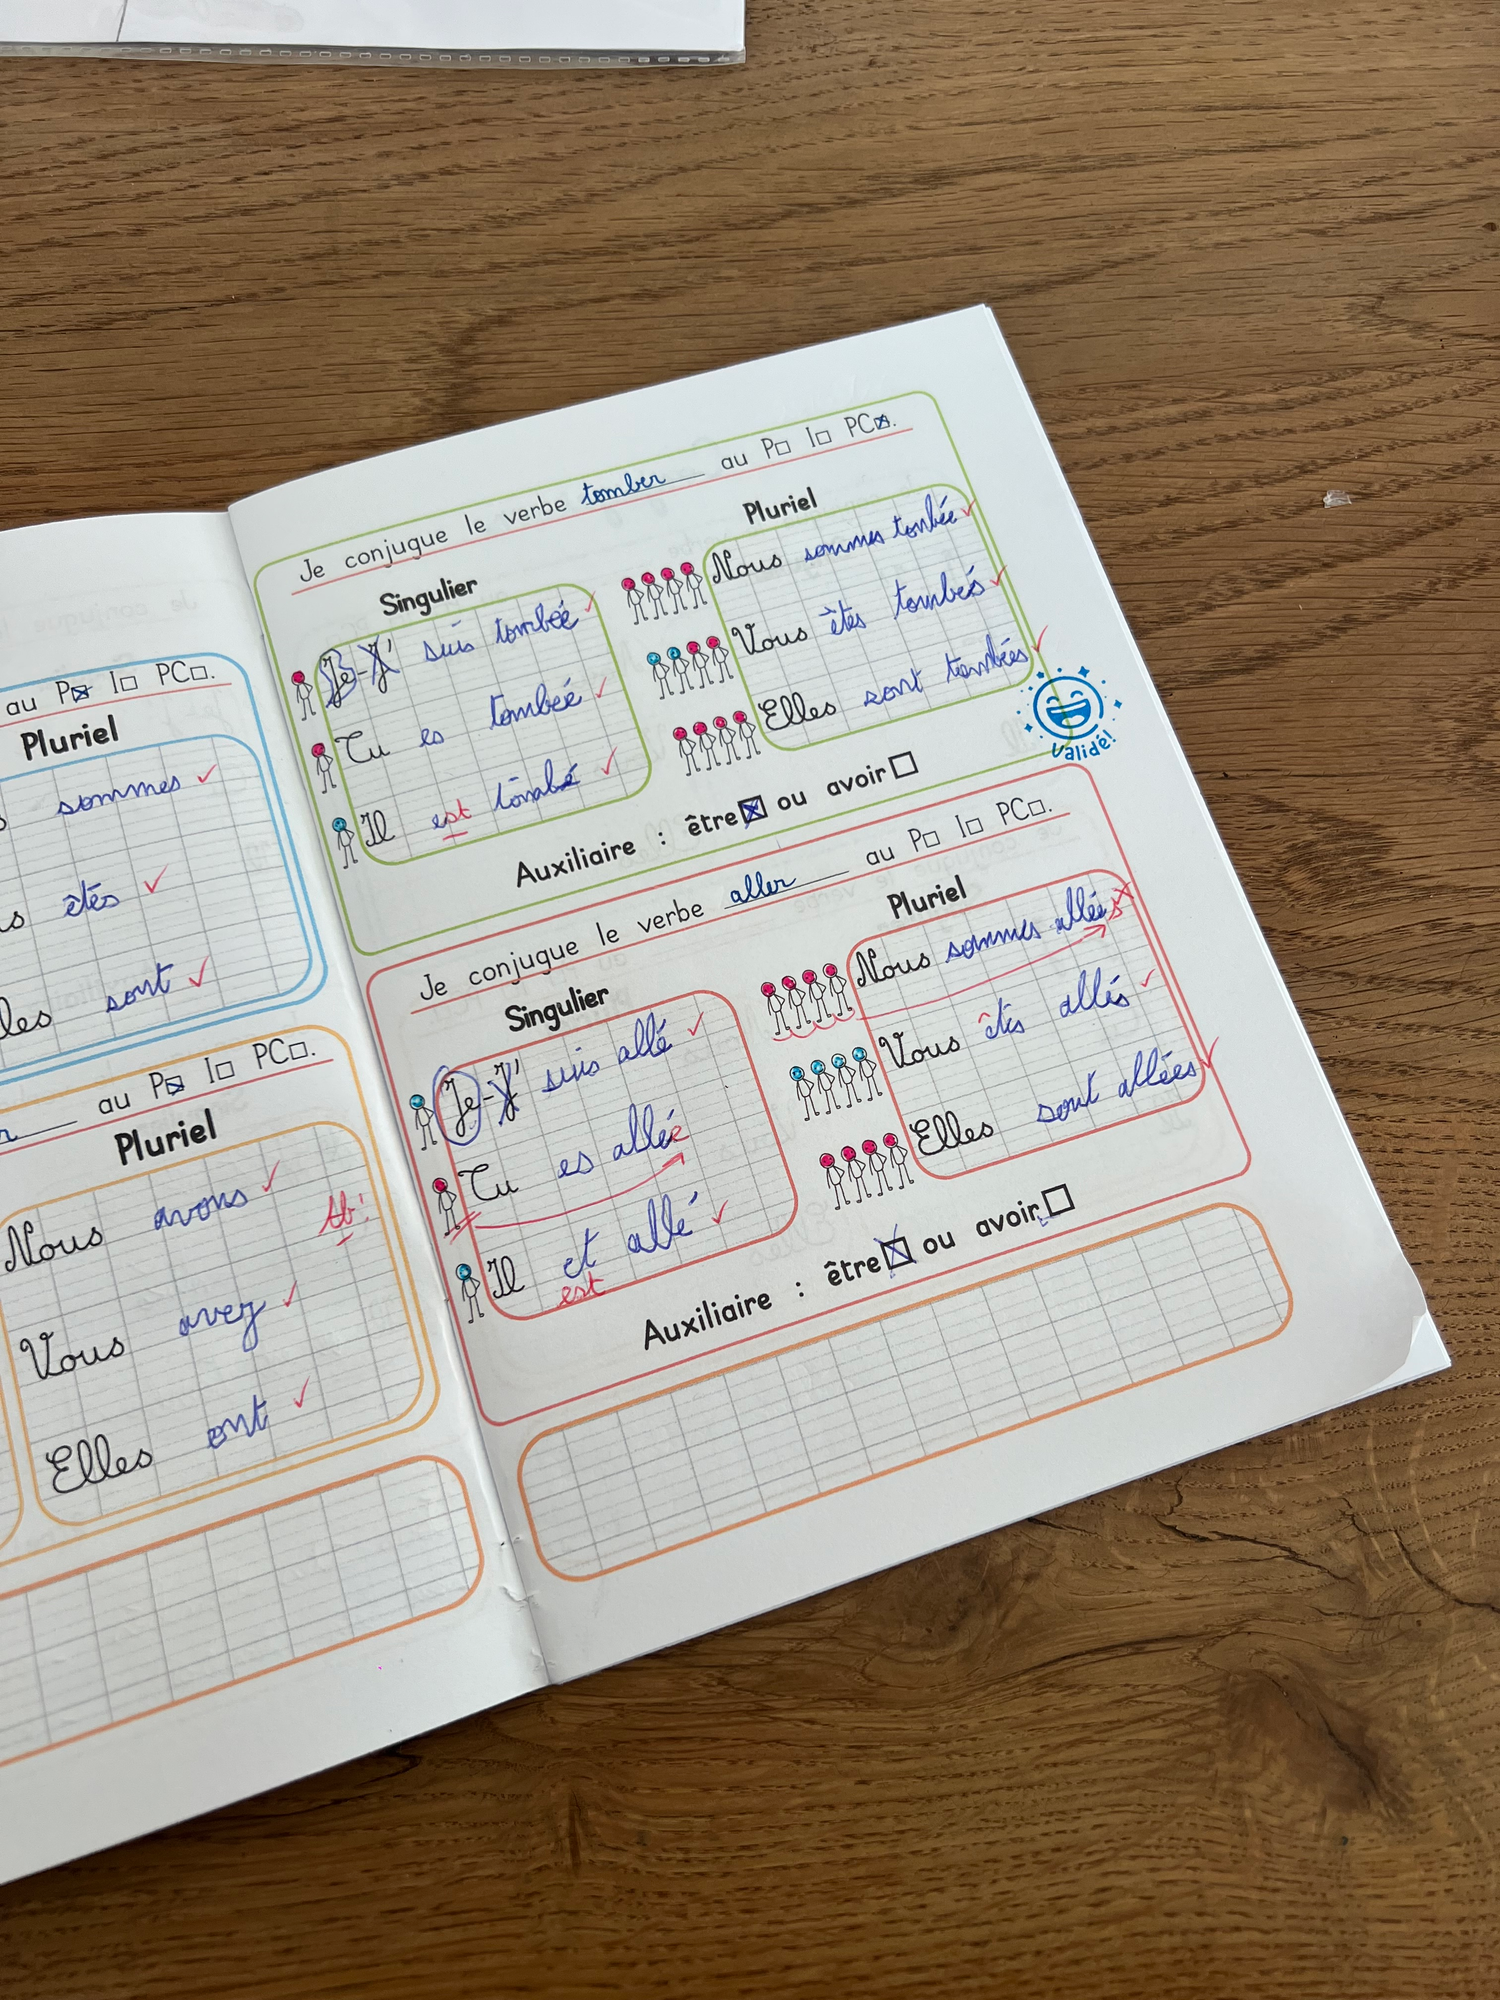 au P☒ I☐ PC☐.
Pluriel
sommes ✓
s êtes ✓
les sont ✓
r au P☒ I☐ PC☐.
Pluriel
Nous avons ✓
tb!
Vous avez ✓
Elles ont ✓
Je conjugue le verbe tomber au P☐ I☐ PC☒.
Singulier
Je-J' suis tombée ✓
Tu es tombée ✓
Il est tombé ✓
Pluriel
Nous sommes tombée ✓
Vous êtes tombés ✓
Elles sont tombées ✓
Validé!
Auxiliaire : être☒ ou avoir☐
Je conjugue le verbe aller au P☐ I☐ PC☐.
Singulier
Je-J' suis allé ✓
Tu es allée
Il et allé ✓
est
Pluriel
Nous sommes allées
Vous êtes allés ✓
Elles sont allées ✓
Auxiliaire : être☒ ou avoir☐